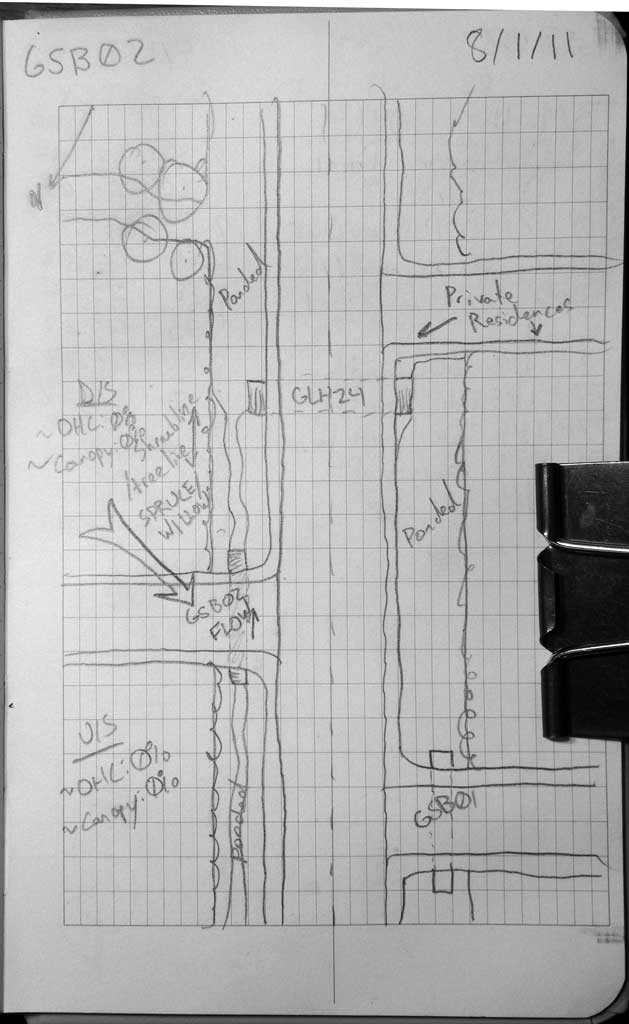 GSB02
8/1/11
N
Ponded
Private
Residences
D/S
~ OHC: 0%
~ Canopy: 0%
Shrubline
/treeline
SPRUCE/
WILLOW
GLH24
Ponded
GSB02
FLOW
U/S
~ OHC: 0%
~ Canopy: 0%
Ponded
GSB01